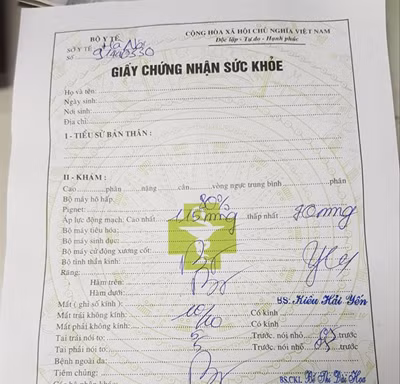 BỘ Y TẾ
CỘNG HÒA XÃ HỘI CHỦ NGHĨA VIỆT NAM
SỞ Y TẾ Hà Nội
Độc lập - Tự do - Hạnh phúc
Số
GIẤY CHỨNG NHẬN SỨC KHỎE
Họ và tên:
Ngày sinh:
Nơi sinh:
Địa chỉ:
I - TIỂU SỬ BẢN THÂN :
II - KHÁM :
Cao phân nặng cân vòng ngực trung bình phân
Bộ máy hô hấp 80%
Pignet:
Áp lực động mạch, Cao nhất 115mmg thấp nhất 70mmg
Bộ máy tiêu hóa:
Bộ máy sinh dục:
Bộ máy cử động xương cốt: Br
Bộ tình thần kinh:
Răng:
Hàm trên: Br
Hàm dưới:
BS: Kiều Hải Yến
Mắt ( ghi số kính ):
Mắt trái không kính: 10/10 Có kính
Mắt phải không kính: Có kính
Tai trái nói to: 5 Trước. nói nhỏ trước
Tai phải nói to: 5 Trước. nói nhỏ trước
Bệnh ngoài da:
Tiêm chủng: